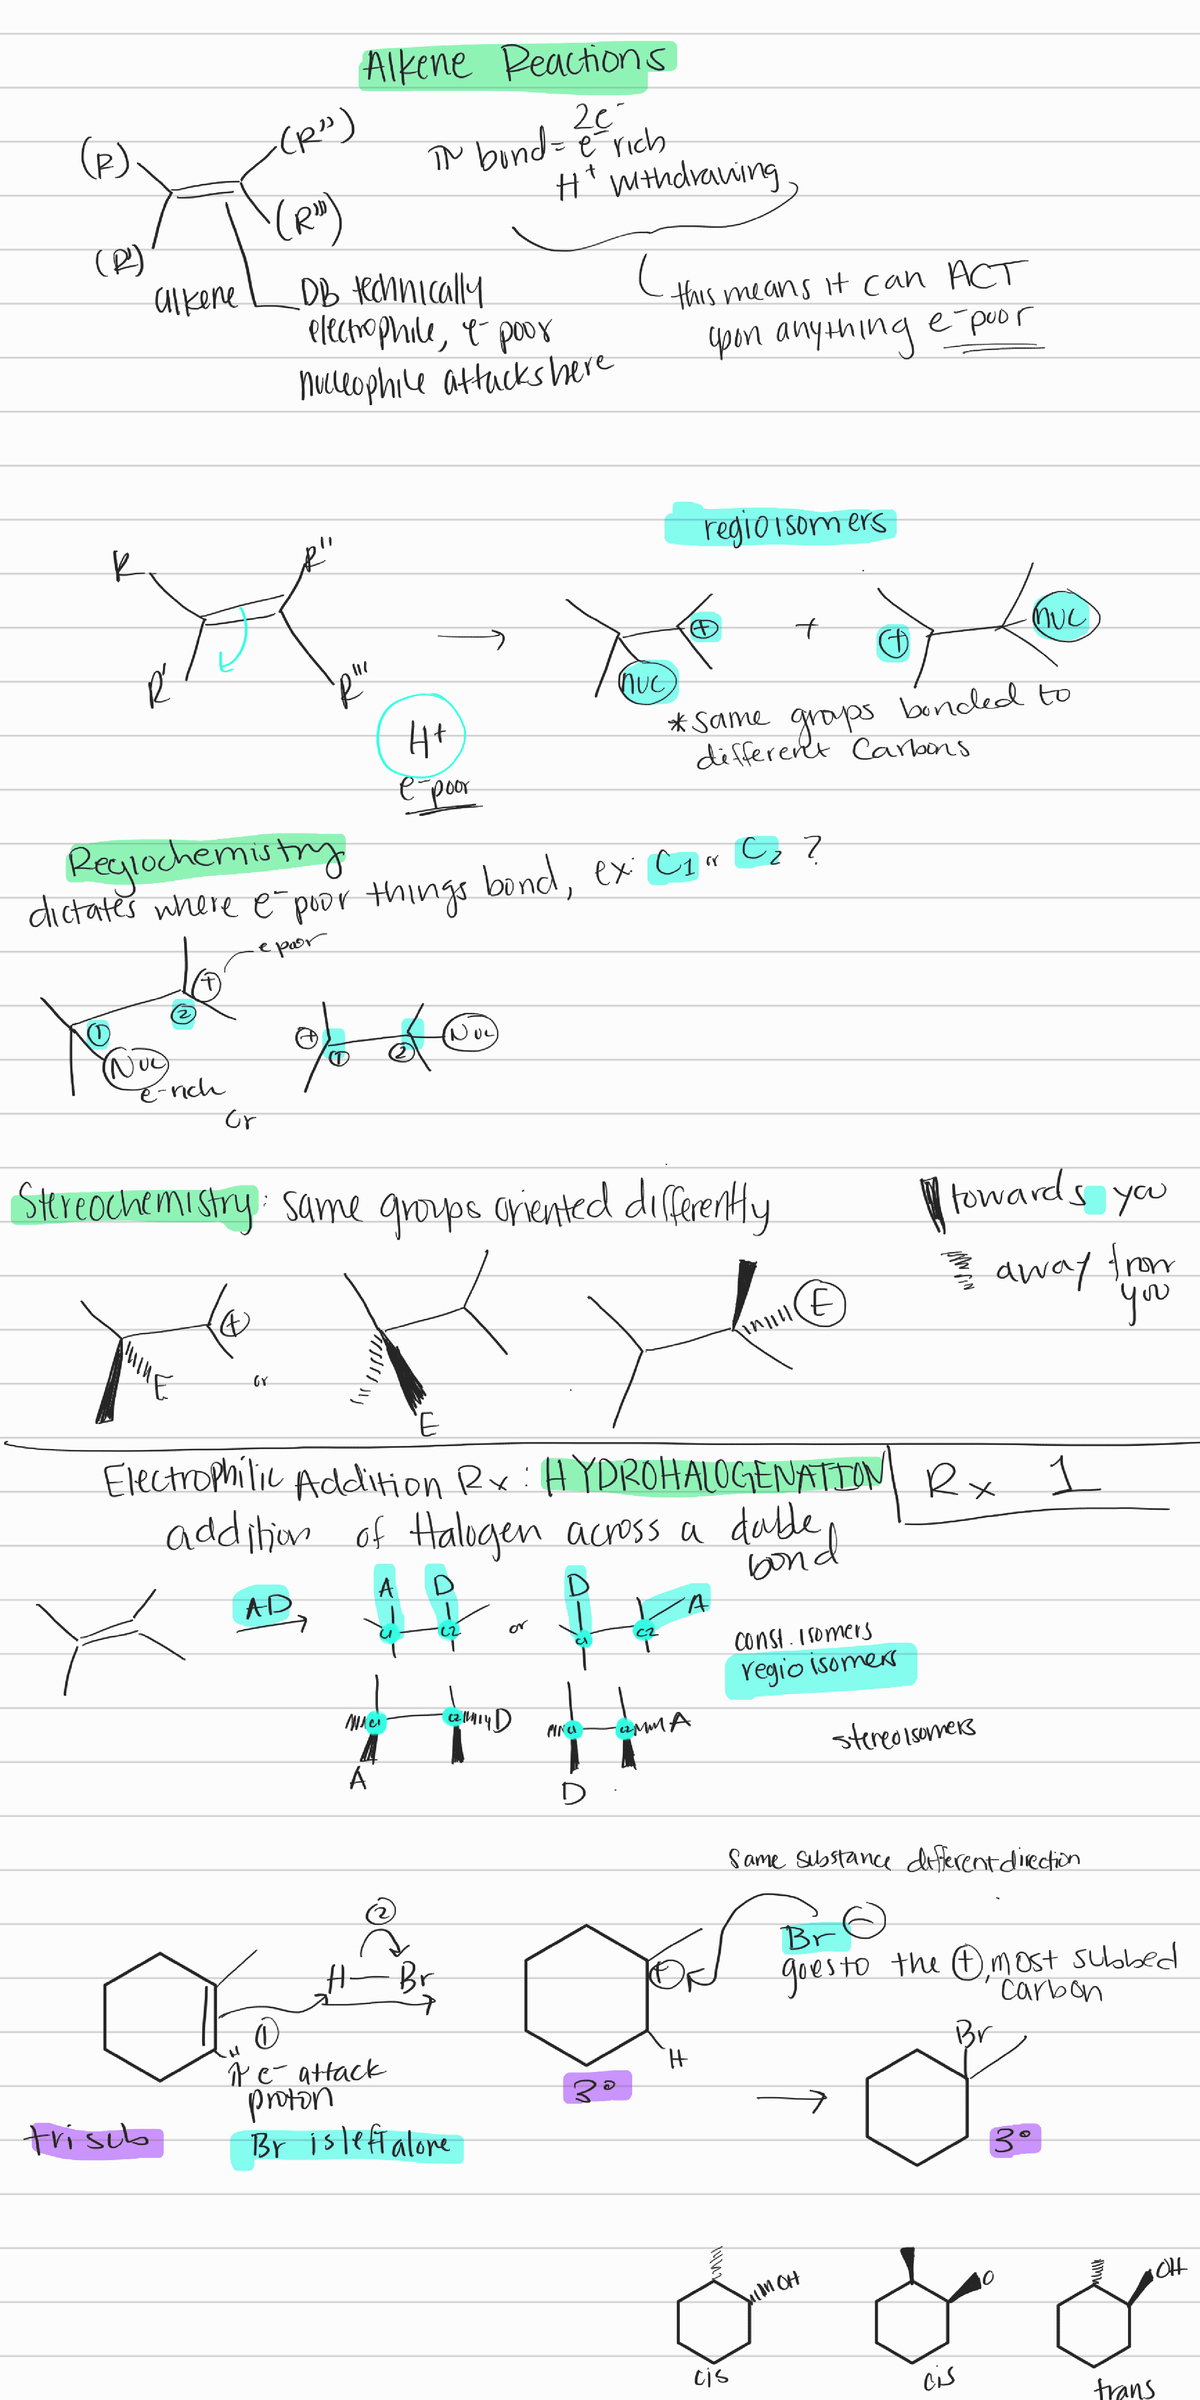 Alkene Reactions
(R)
(R")
(R')
(R''')
2e-
π bond = e- rich
H+ withdrawing
alkene
DB technically
electrophile, e- poor
nucleophile attacks here
this means it can ACT
upon anything e-poor
regioisomers
R
R"
R'
R'''
H+
e-poor
+
nuc
+
+
nuc
*same groups bonded to
different Carbons
Regiochemistry
dictates where e-poor things bond, ex: C1 or C2 ?
+
e poor
1
2
Nuc
e-rich
or
+
1
2
Nuc
Stereochemistry: same groups oriented differently
towards you
away from
you
+
E
or
E
E
Electrophilic Addition Rx: HYDROHALOGENATION
Rx 1
addition of Halogen across a double
bond
A-D
A D
C1 C2
or
D A
C1 C2
const. isomers
regioisomers
C1 C2 D
A
C1 C2 A
D
stereoisomers
same substance different direction
2
H—Br
1
H
π e- attack
proton
trisub
Br is left alone
+
H
3°
Br -
goes to the +, most subbed
carbon
Br
3°
OH
cis
O
cis
OH
trans